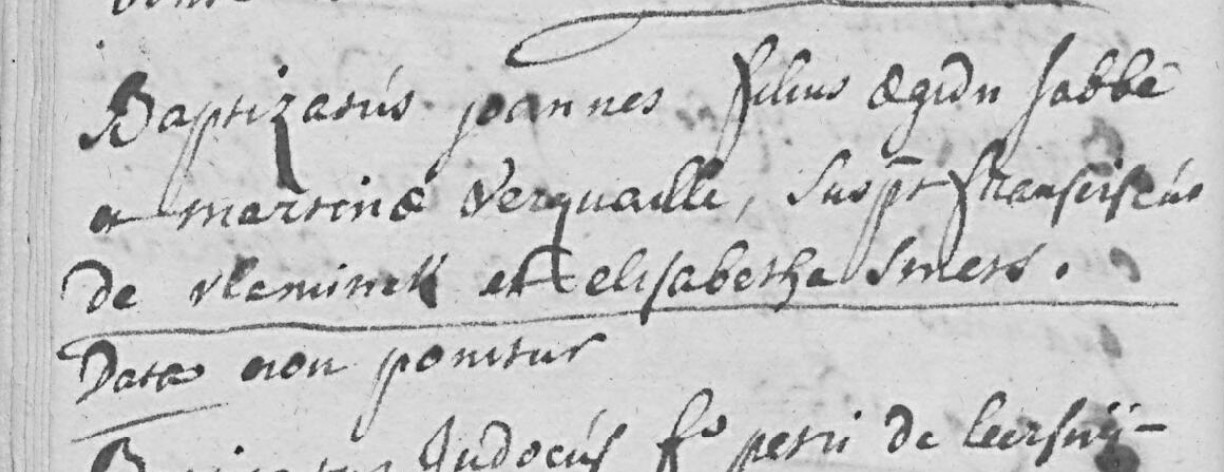 Baptizatus joannes filius ægidii sabbe
et martinæ Verquaille, susp̄t fransisĉus
de vleminck et elisabetha smets.
Data non ponitur
Judocus fs petri de